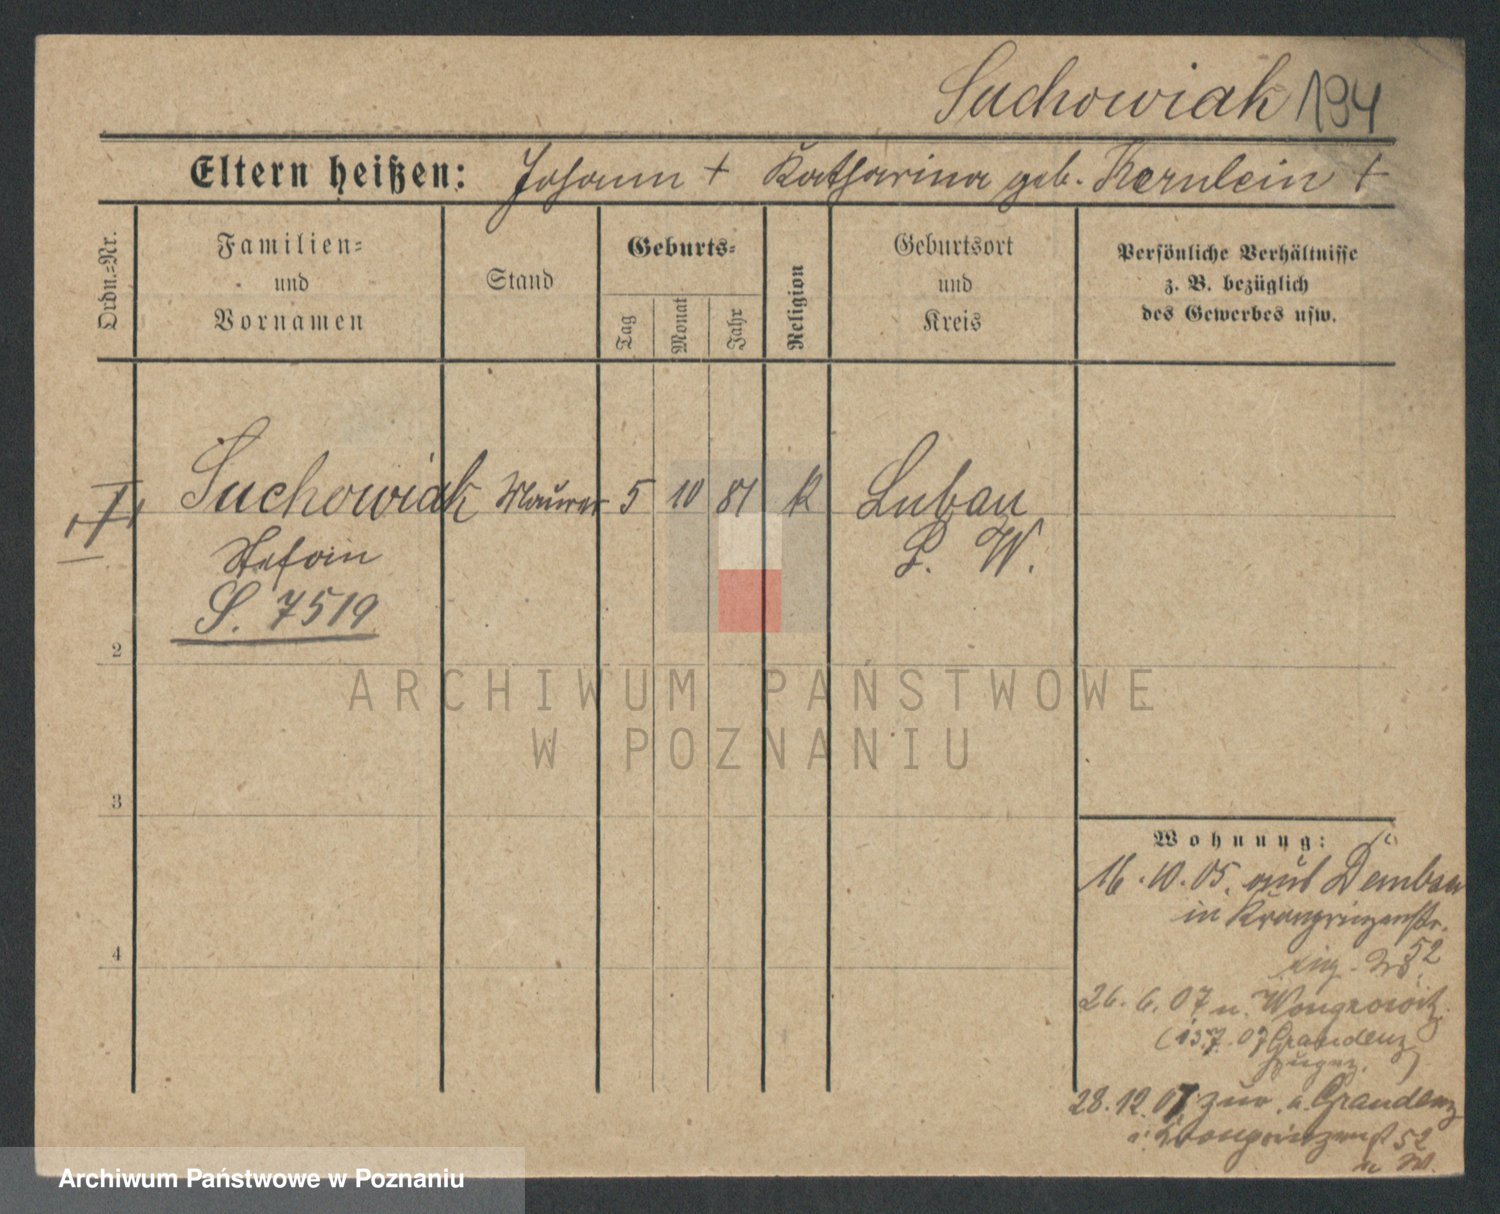 Suchowiak 194
Eltern heißen: Johann + Katharina geb. Kernlein +
Ordn.=Nr.
Familien=
und
Vornamen
Stand
Geburts=
Tag
Monat
Jahr
Religion
Geburtsort
und
Kreis
Persönliche Verhältnisse
z. B. bezüglich
des Gewerbes usw.
Suchowiak Maurer 5 10 81 k Luban
Stefan P. W.
S. 7519
2
3
4
Wohnung:
16.10.05. aus Dembsen
in Kronprinzenstr.
52
26.6.07 n. Wongrowitz
(13.7.07 Graudenz
zugez.)
28.12.07 zur. a. Graudenz
i. Kronprinzenst 52
ARCHIWUM PAŃSTWOWE
W POZNANIU
Archiwum Państwowe w Poznaniu